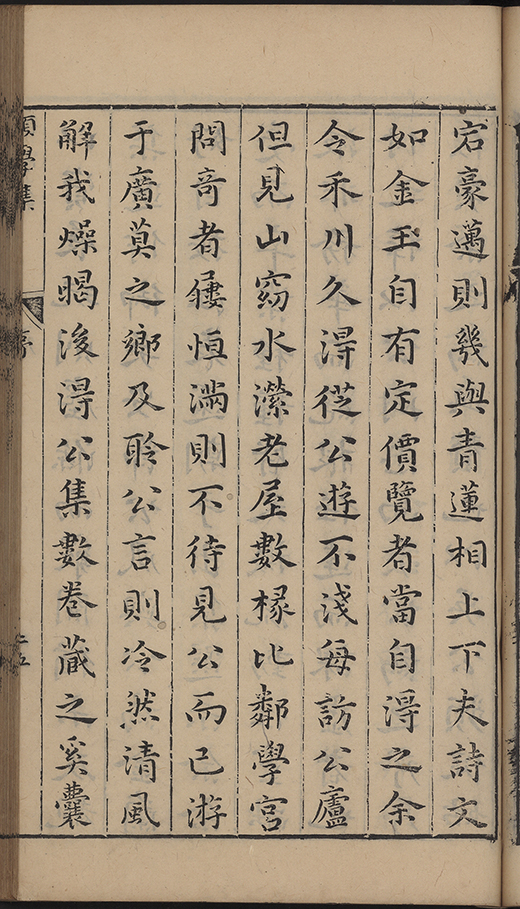 宕豪邁則幾與青蓮相上下夫詩文
如金玉自有定價覽者當自得之余
令禾川久得從公遊不淺每訪公廬
但見山窈水瀠老屋數椽比鄰學宮
問奇者屨恒滿則不待見公而已游
于廣莫之鄉及聆公言則冷然清風
解我燥暍後得公集數卷藏之奚囊
學集
序